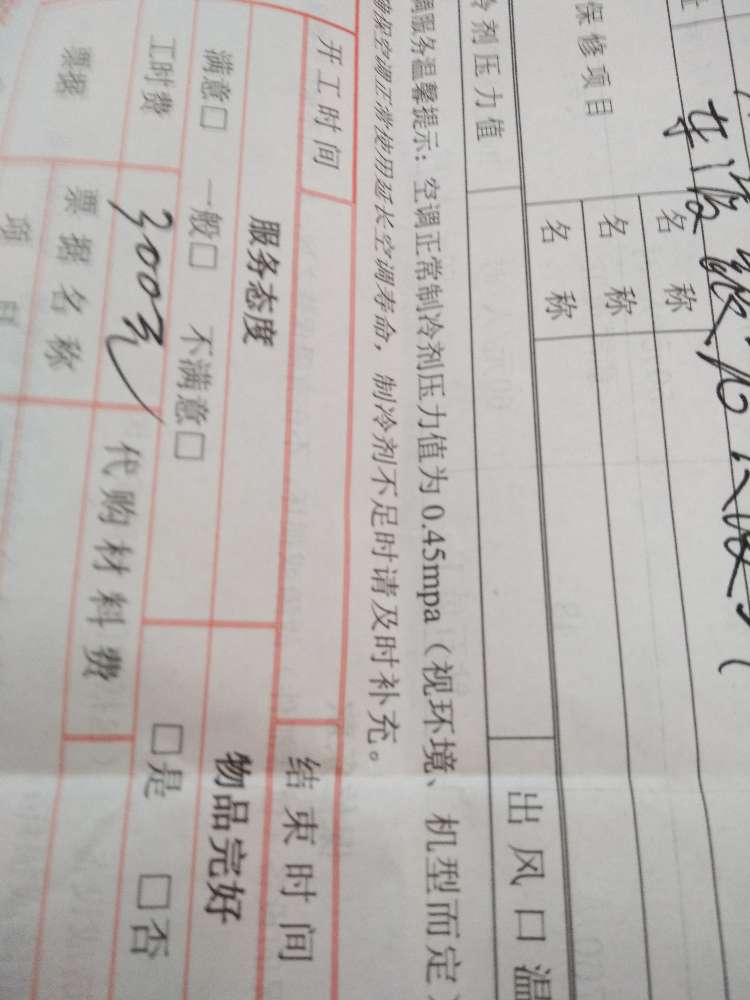 名称
保修项目 名称
名称
冷剂压力值 出风口温
调服务温馨提示：空调正常制冷剂压力值为0.45mpa（视环境、机型而定）
确保空调正常使用延长空调寿命，制冷剂不足时请及时补充。
开工时间 结束时间
服务态度 物品完好
满意□ 一般□ 不满意□ □是 □否
工时费 300元 代购材料费
票据 票据名称
项目